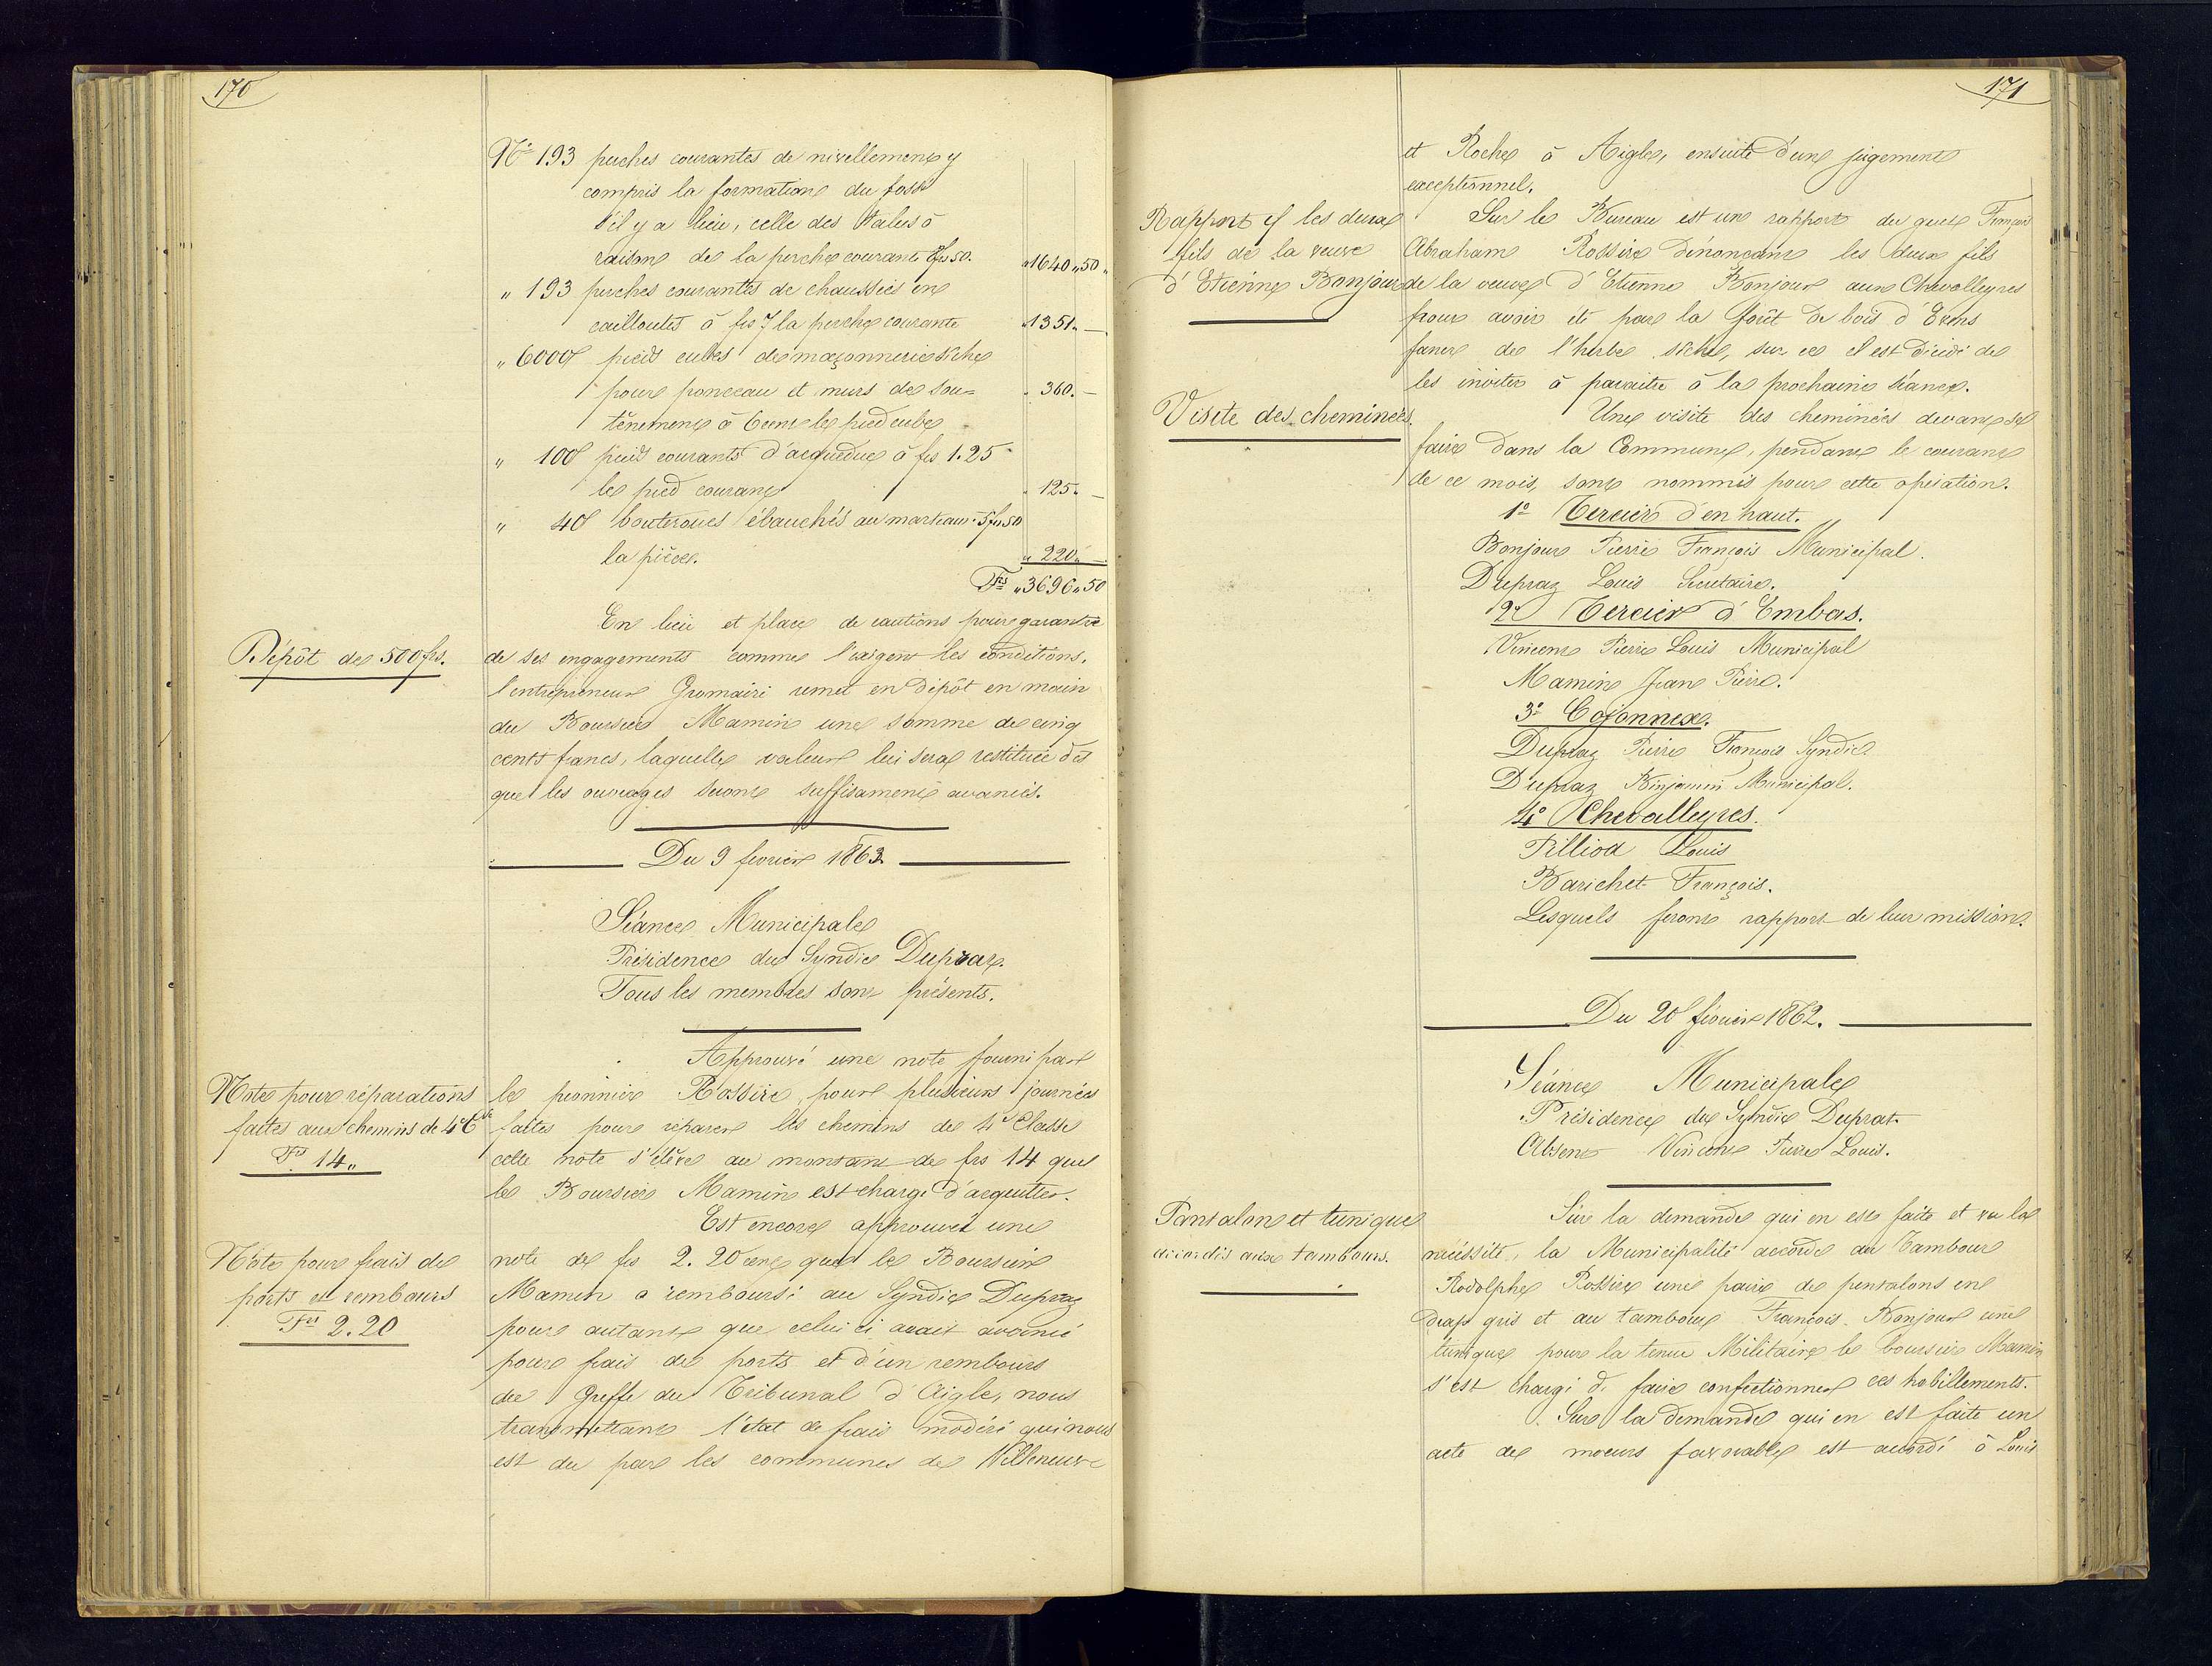 170
No 193 perches courantes de nivellement y
compris la formation du fossé
s'il y a lieu, celle des talus à
raison de la perche courante 8 frs 50. " 1640 " 50 "
" 193 perches courantes de chaussées en
cailloutés à frs 7 la perche courante " 1351 " —
" 6000 pieds cubes de maçonnerie sèche
pour ponceau et murs de sou= " 360. —
tènement à 6 cent le pied cube
" 100 pieds courants d'acqueduc à frs 1.25
le pied courant " 125 " —
" 40 bouteroues ébauchés au marteau 5 frs 50
la pièce. " 220 " —
Frs " 3696 " 50
En lieu et place de cautions pour garantie
Dépôt de 500 frs.
de ses engagements comme l'exigent les conditions.
l'entrepreneur Gromairi remet en dépôt en main
du Boursier Mamin une somme de cinq
cents francs, laquelle valeur lui sera restituée dès
que les ouvrages seront suffisament avancés.
Du 9 fevrier 1862
Séance Municipale
Présidence du Syndic Dupraz.
Tous les membres sont présents.
Approuvé une note fourni par
Note pour réparations
faites aux chemins de 4e C
Frs 14 "
le pionnier Rossire, pour plusieurs journées
faites pour réparer les chemins de 4e Classe
cette note s'élève au montant de frs 14 que
le Boursier Mamin est chargé d'acquitter.
Est encore approuvée une
Note pour frais de
ports et rembours
Frs 2.20
note de frs 2.20 cent que le Boursier
Mamin a remboursé au Syndic Dupraz
pour autant que celui ci avait avancé
pour frais de ports et d'un rembours
du Greffe du Tribunal d'Aigle, nous
transmettant l'état de frais modéré qui nous
est du par les communes de Villeneuve
171
et Roche à Aigle, ensuite d'une jugement
exceptionnel.
Rapport cf les deux
fils de la veuve
d'Etienne Bonjour
Sur le Bureau est un rapport du guet François
Abraham Rossire dénonçant les deux fils
de la veuve d'Etienne Bonjour aux Chevalleyres
pour avoir été par la forêt de bois d'Ens
faner de l'herbe sèche, sur ce il est décidé de
les inviter à paraitre à la prochaine séance.
Visite des cheminées.
Une visite des cheminées devant se
faire dans la Commune, pendant le courant
de ce mois, sont nommés pour cette opération.
1o Tercier d'en haut.
Bonjour Pierre François Municipal.
Dupraz Louis Secrétaire.
2o Tercier d'Embas.
Vincent Pierre Louis Municipal
Mamin Jean Pierre.
3o Cojonnex.
Dupraz Pierre François Syndic
Dupraz Binjamin Municipal.
4o Chevalleyres.
Pilliod Louis
Barichet François.
Lesquels feront rapport de leur mission.
Du 20 février 1862.
Séance Municipale
Présidence du Syndic Duprat.
Absent Vincent Pierre Louis.
Pantalon et tunique
accordés aux tambours.
Sur la demande qui en est faite et vu la
nécéssité, la Municipalité accorde au Tambour
Rodolphe Rossire une paire de pentalons en
drap gris et au tambour François Bonjour une
tunique pour la tenue Militaire le boursier Mamin
s'est chargé de faire confectionner ces habillements.
Sur la demande qui en est faite un
acte de moeurs favorable est accordé à Louis